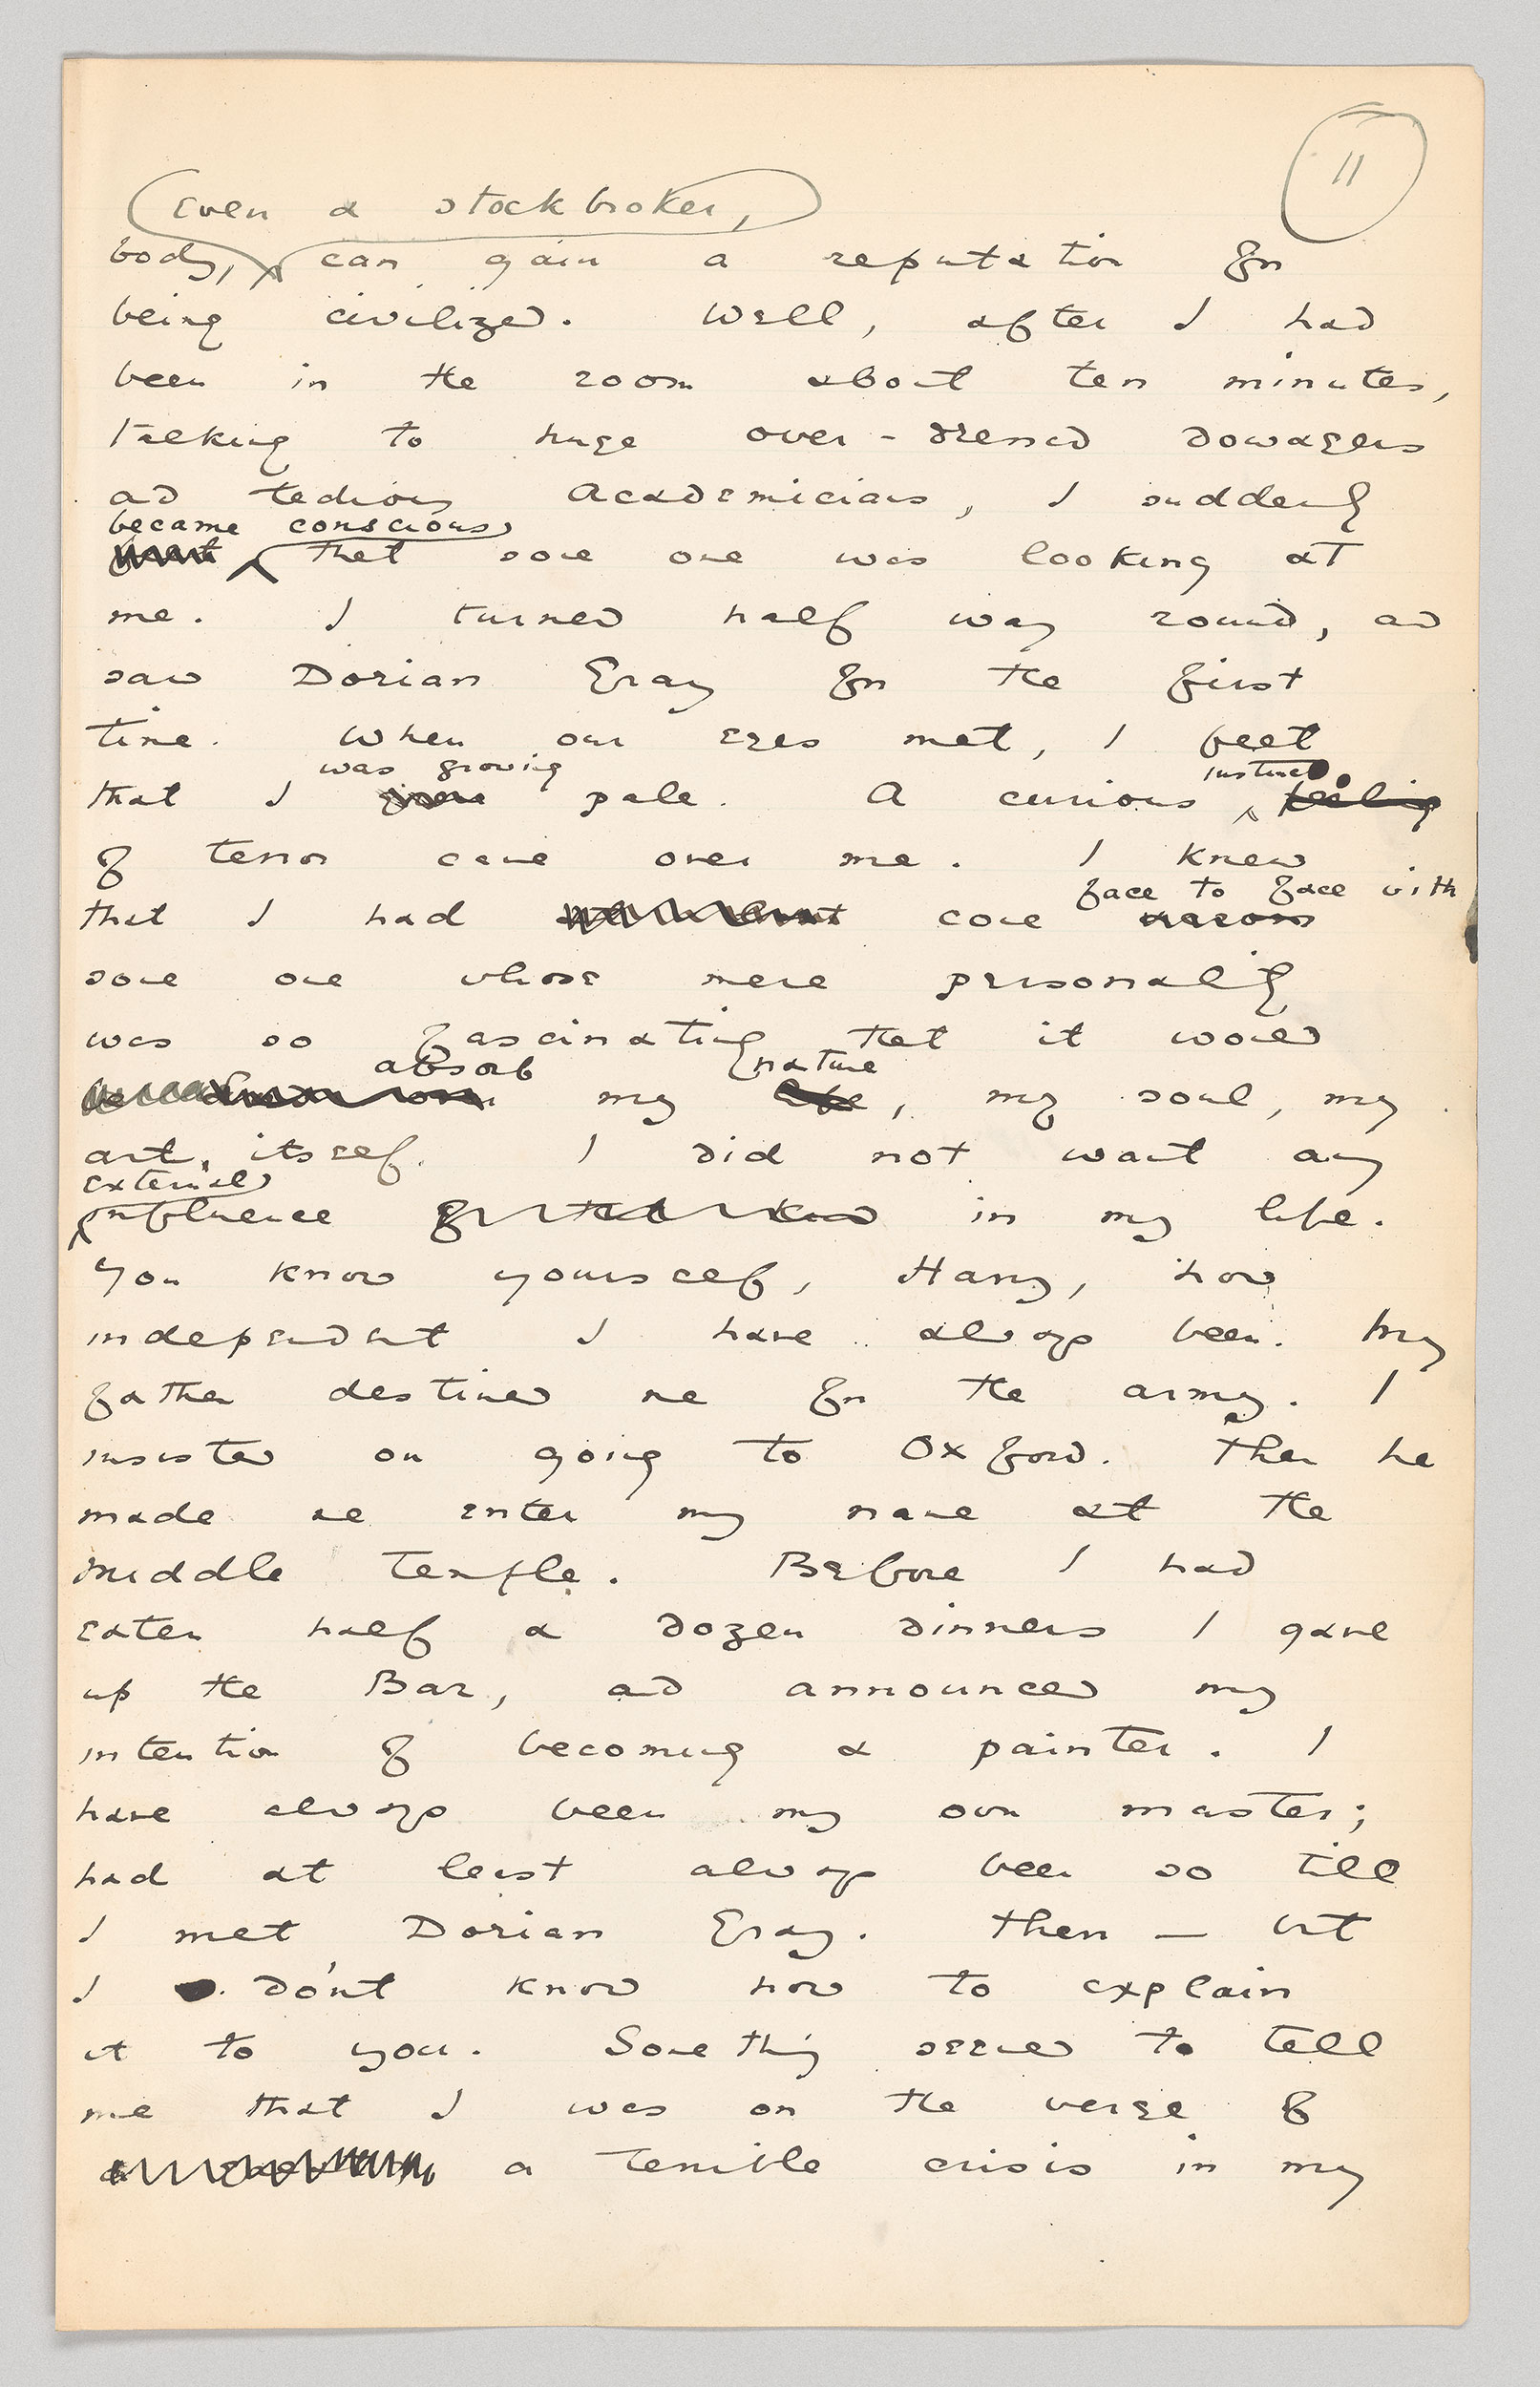 11
Even a stockbroker,
body, can gain a reputation for
being civilized. Well, after I had
been in the room about ten minutes,
talking to huge over-dressed dowagers
and tedious Academicians, I suddenly
became conscious
that some one was looking at
me. I turned half way round, and
saw Dorian Gray for the first
time. When our eyes met, I felt
was growing instinct
that I grew pale. A curious feeling
of terror came over me. I knew
face to face with
that I had come across
some one whose mere personality
was so fascinating that it would
absorb nature
my life, my soul, my
art, itself. I did not want any
external
influence in my life.
You know yourself, Harry, how
independent I have always been. My
father destined me for the army. I
insisted on going to Oxford. Then he
made me enter my name at the
Middle Temple. Before I had
eaten half a dozen dinners I gave
up the Bar, and announced my
intention of becoming a painter. I
have always been my own master;
had at least always been so till
I met Dorian Gray. Then — but
I don't know how to explain
it to you. Something seemed to tell
me that I was on the verge of
a terrible crisis in my